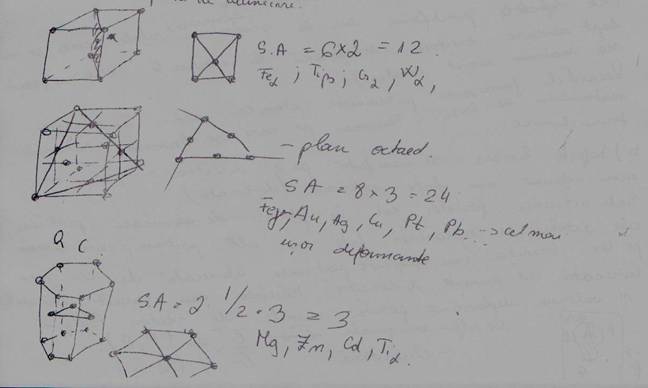 de alunecare.
S.A = 6x2 = 12
Feα ; Tiβ ; Crα , Wα ,
- plan octaed.
SA = 8x3 = 24
Feγ, Au, Ag, Cu, Pt, Pb... → cel mai
ușor deformante
a c
SA = 2 1/2 · 3 = 3
Mg, Zn, Cd, Tiα.